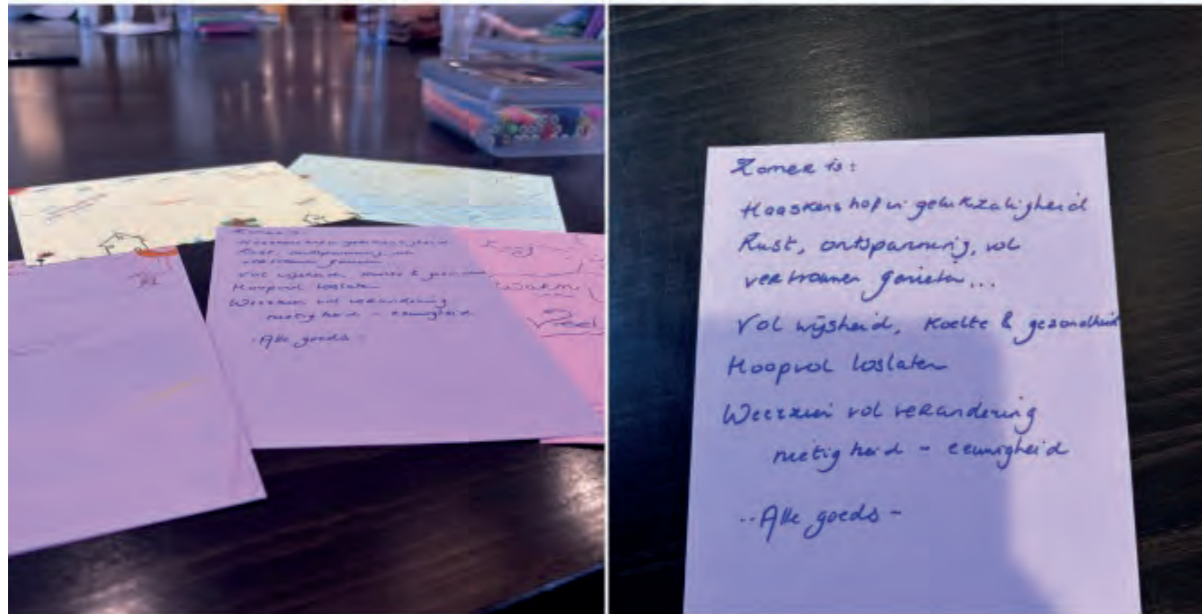 Zomer is:
gelukzaligheid
Rust, ontspanning, vol
vertrouwen genieten...
Vol wijsheid, koelte &
Hoopvol loslaten
Weerzien vol verandering
nietigheid - eeuwigheid
- Alle goeds -
Warm
Veel
Zomer is:
gelukzaligheid
Rust, ontspanning, vol
vertrouwen genieten...
Vol wijsheid, Koelte & gezondheid
Hoopvol loslaten
Weerzien vol verandering
nietigheid - eeuwigheid
-- Alle goeds -